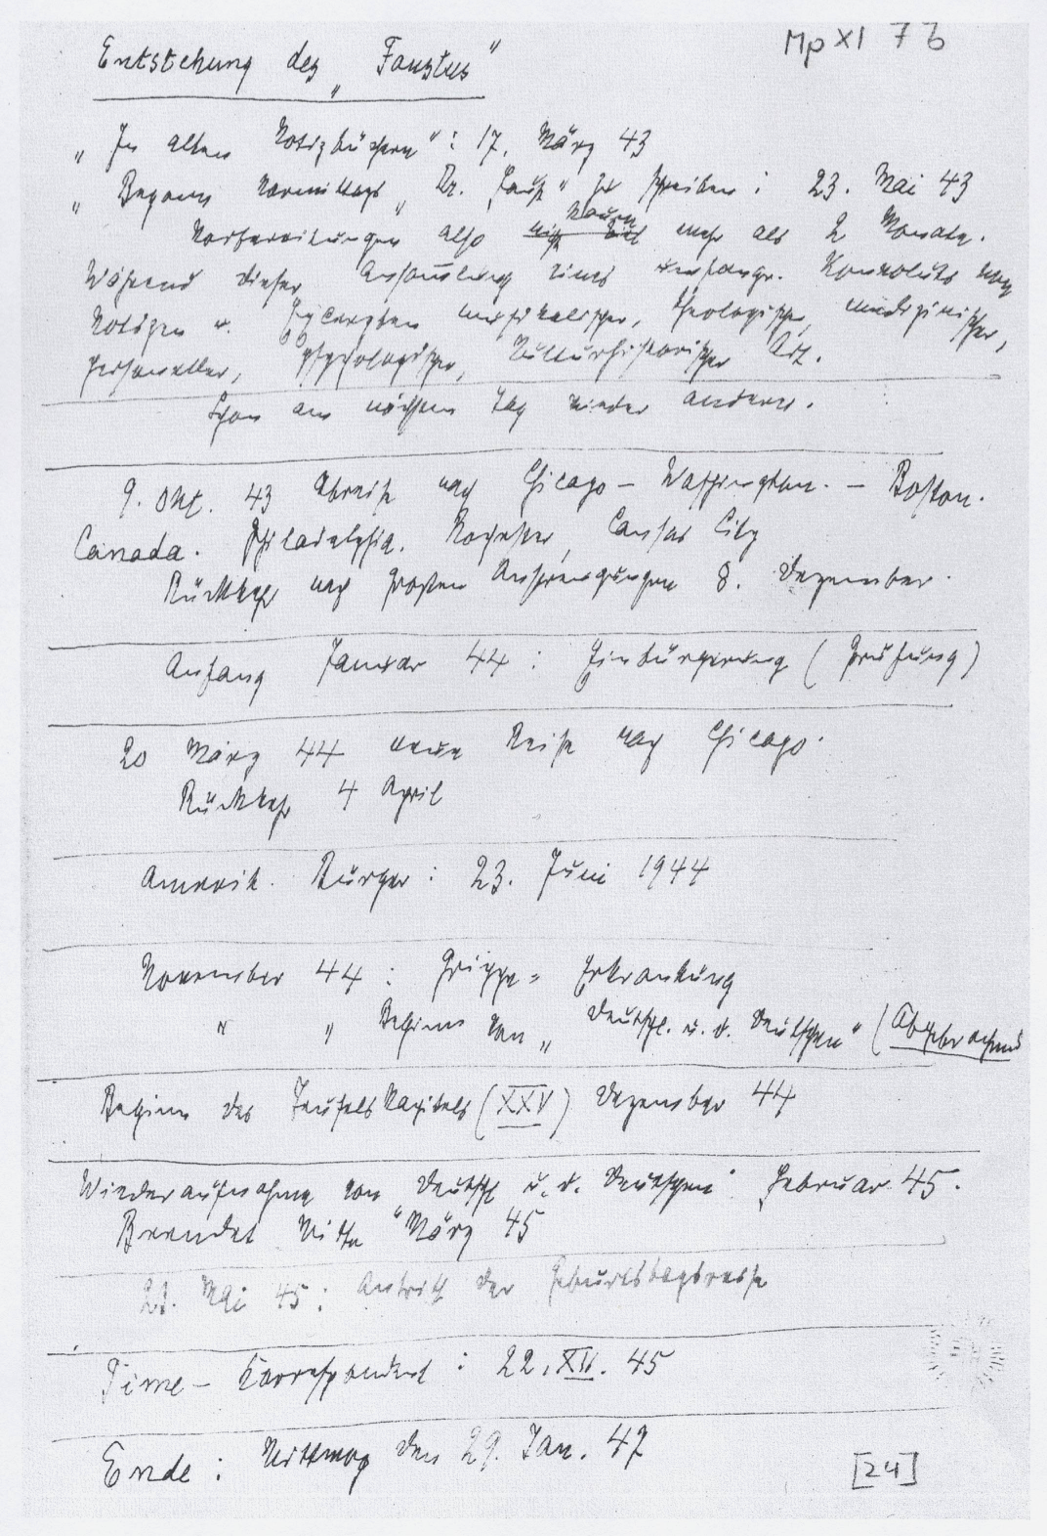 Mp XI 7 b
Entstehung des „Faustus"
„In alten Notizbüchern": 17. März 43
„Begann vormittags „Dr. Faust" zu schreiben: 23. Mai 43
Vorbereitungen also kaum mehr als 2 Monate.
Während dieser Ansammlung eines umfangr. Konvoluts von
Notizen u. Exzerpten musikalischer, theologischer, medizinischer,
personeller, psychologischer, kulturhistorischer Art.
Schon am nächsten Tag wieder anderes.
9. Okt. 43 Abreise nach Chicago – Washington. – Boston.
Canada. Philadelphia. Rochester, Cansas City
Rückkehr nach großen Anstrengungen 8. Dezember.
Anfang Januar 44: Einbürgerung (Prüfung)
20 März 44 neue Reise nach Chicago.
Rückkehr 4 April
Amerik. Bürger: 23. Juni 1944
November 44: Grippe-Erkrankung
" " Beginn von „Deutschl. u. d. Deutschen" (Abgebrochen)
Beginn des Teufelskapitels (XXV) Dezember 44
Wiederaufnahme von „Deutschl u. d. Deutschen" Februar 45.
Beendet Mitte März 45
Mai 45: Antritt der Geburtstagsreise
Time-Correspondent: 22. 45
Ende: den 29. Jan. 47
[24]